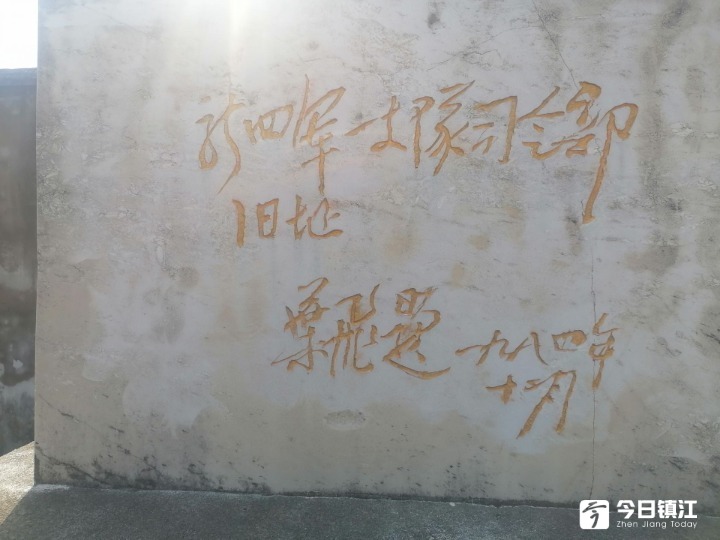 新四军一支队司令部
旧址
葉飛题 一九八四年
十二月
今日镇江
Zhen Jiang Today